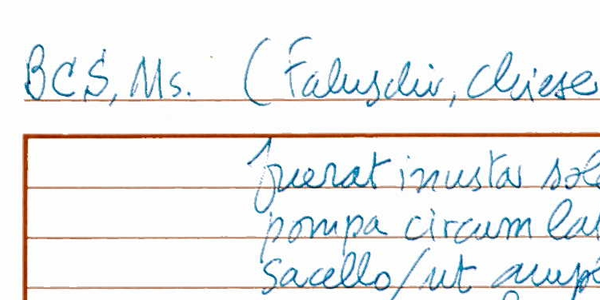 BCS, Ms. (Falusdiv, chiese
fuerat inusta sole
pompa circum lat
sacello/ut